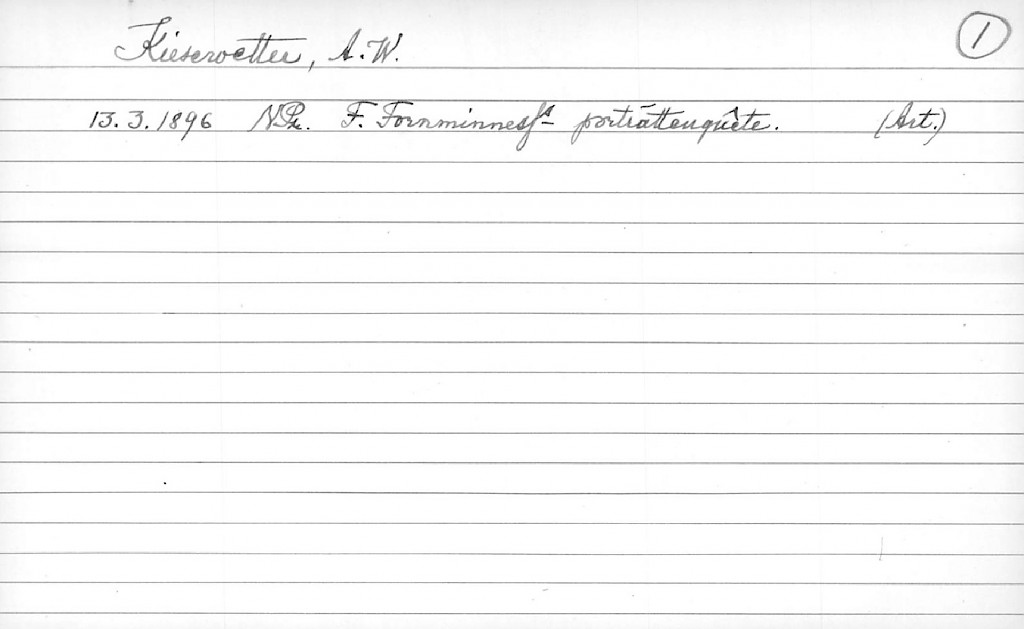 Kieserwetter, A. W.
1
13.3.1896 NPr. F. Fornminnesfs porträttenquête. (Art.)